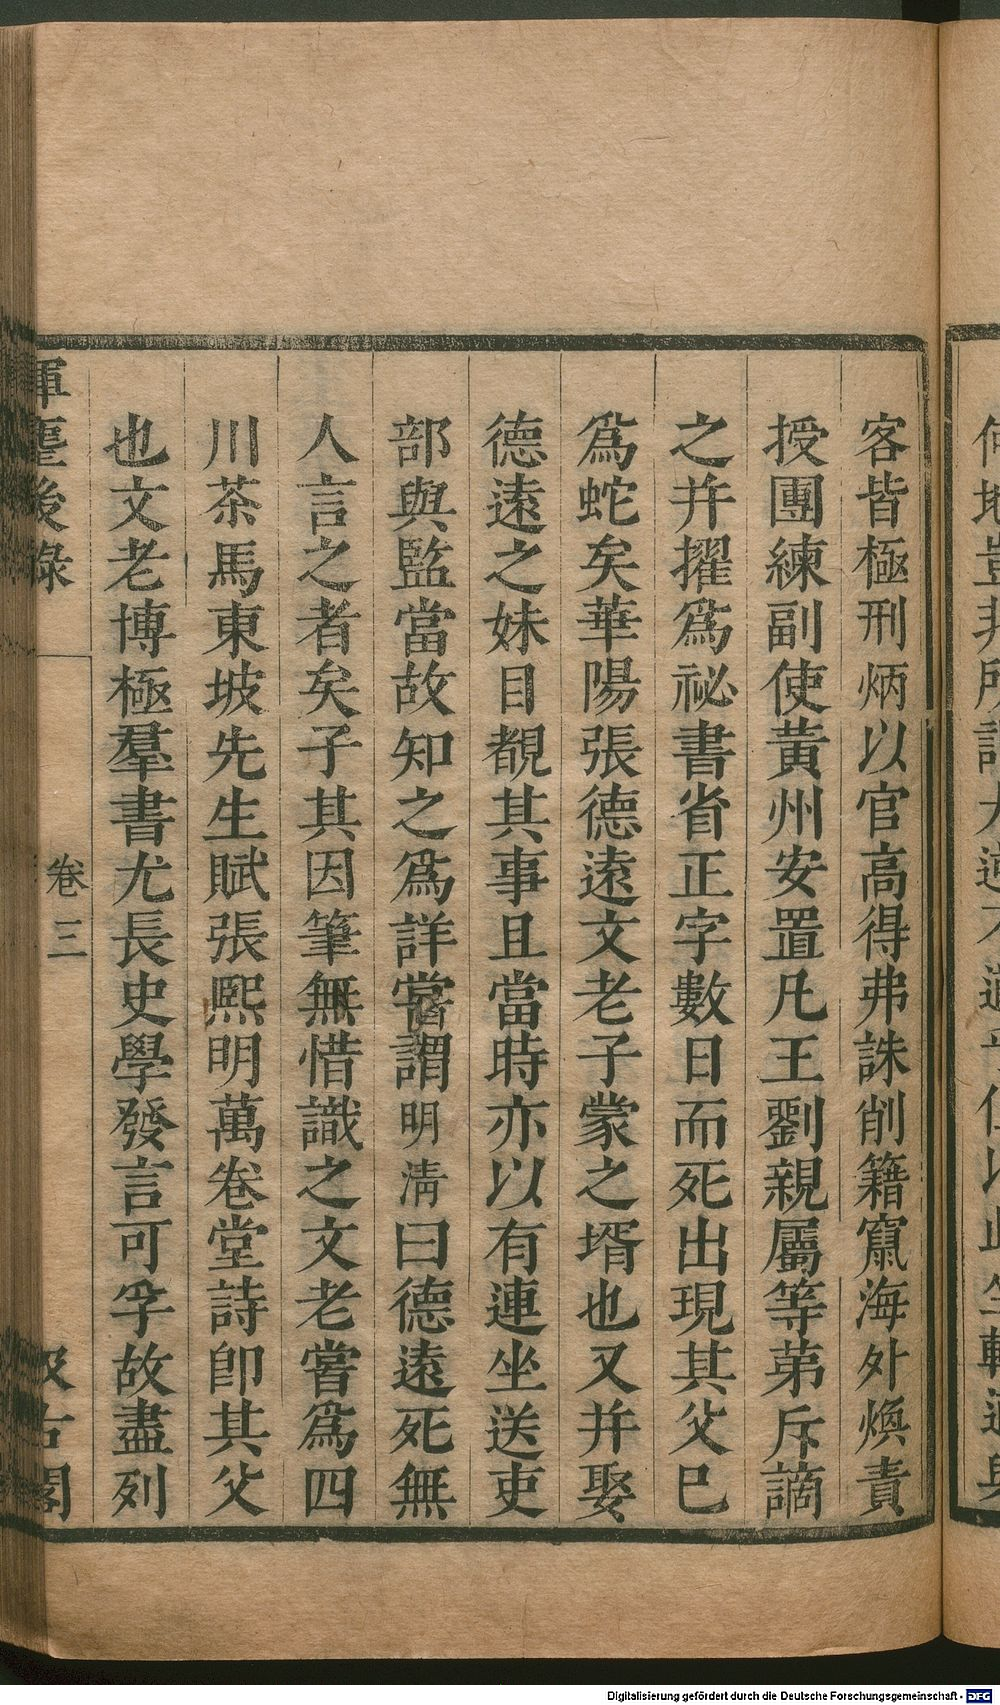 客皆極刑炳以官高得弗誅削籍竄海外煥責
授團練副使黃州安置凡王劉親屬等第斥謫
之并擢爲祕書省正字數日而死出現其父巳
爲蛇矣華陽張德遠文老子蒙之壻也又并娶
德遠之妹目覩其事且當時亦以有連坐送吏
部與監當故知之爲詳嘗謂明淸曰德遠死無
人言之者矣子其因筆無惜識之文老嘗爲四
川茶馬東坡先生賦張熙明萬卷堂詩卽其父
也文老博極羣書尤長史學發言可孚故盡列
揮麈後錄
卷三
汲古閣
Digitalisierung gefördert durch die Deutsche Forschungsgemeinschaft - DFG